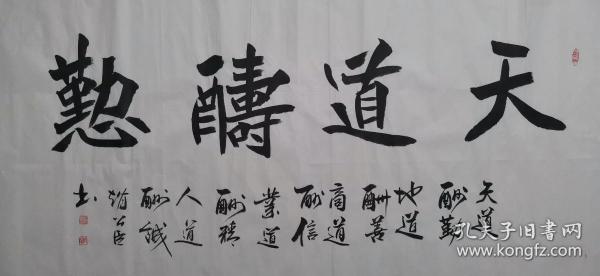 天道酬懃
天道
酬勤
地道
酬善
商道
酬信
業道
酬精
人道
酬誠
书
孔夫子旧书网
www.kongfz.com